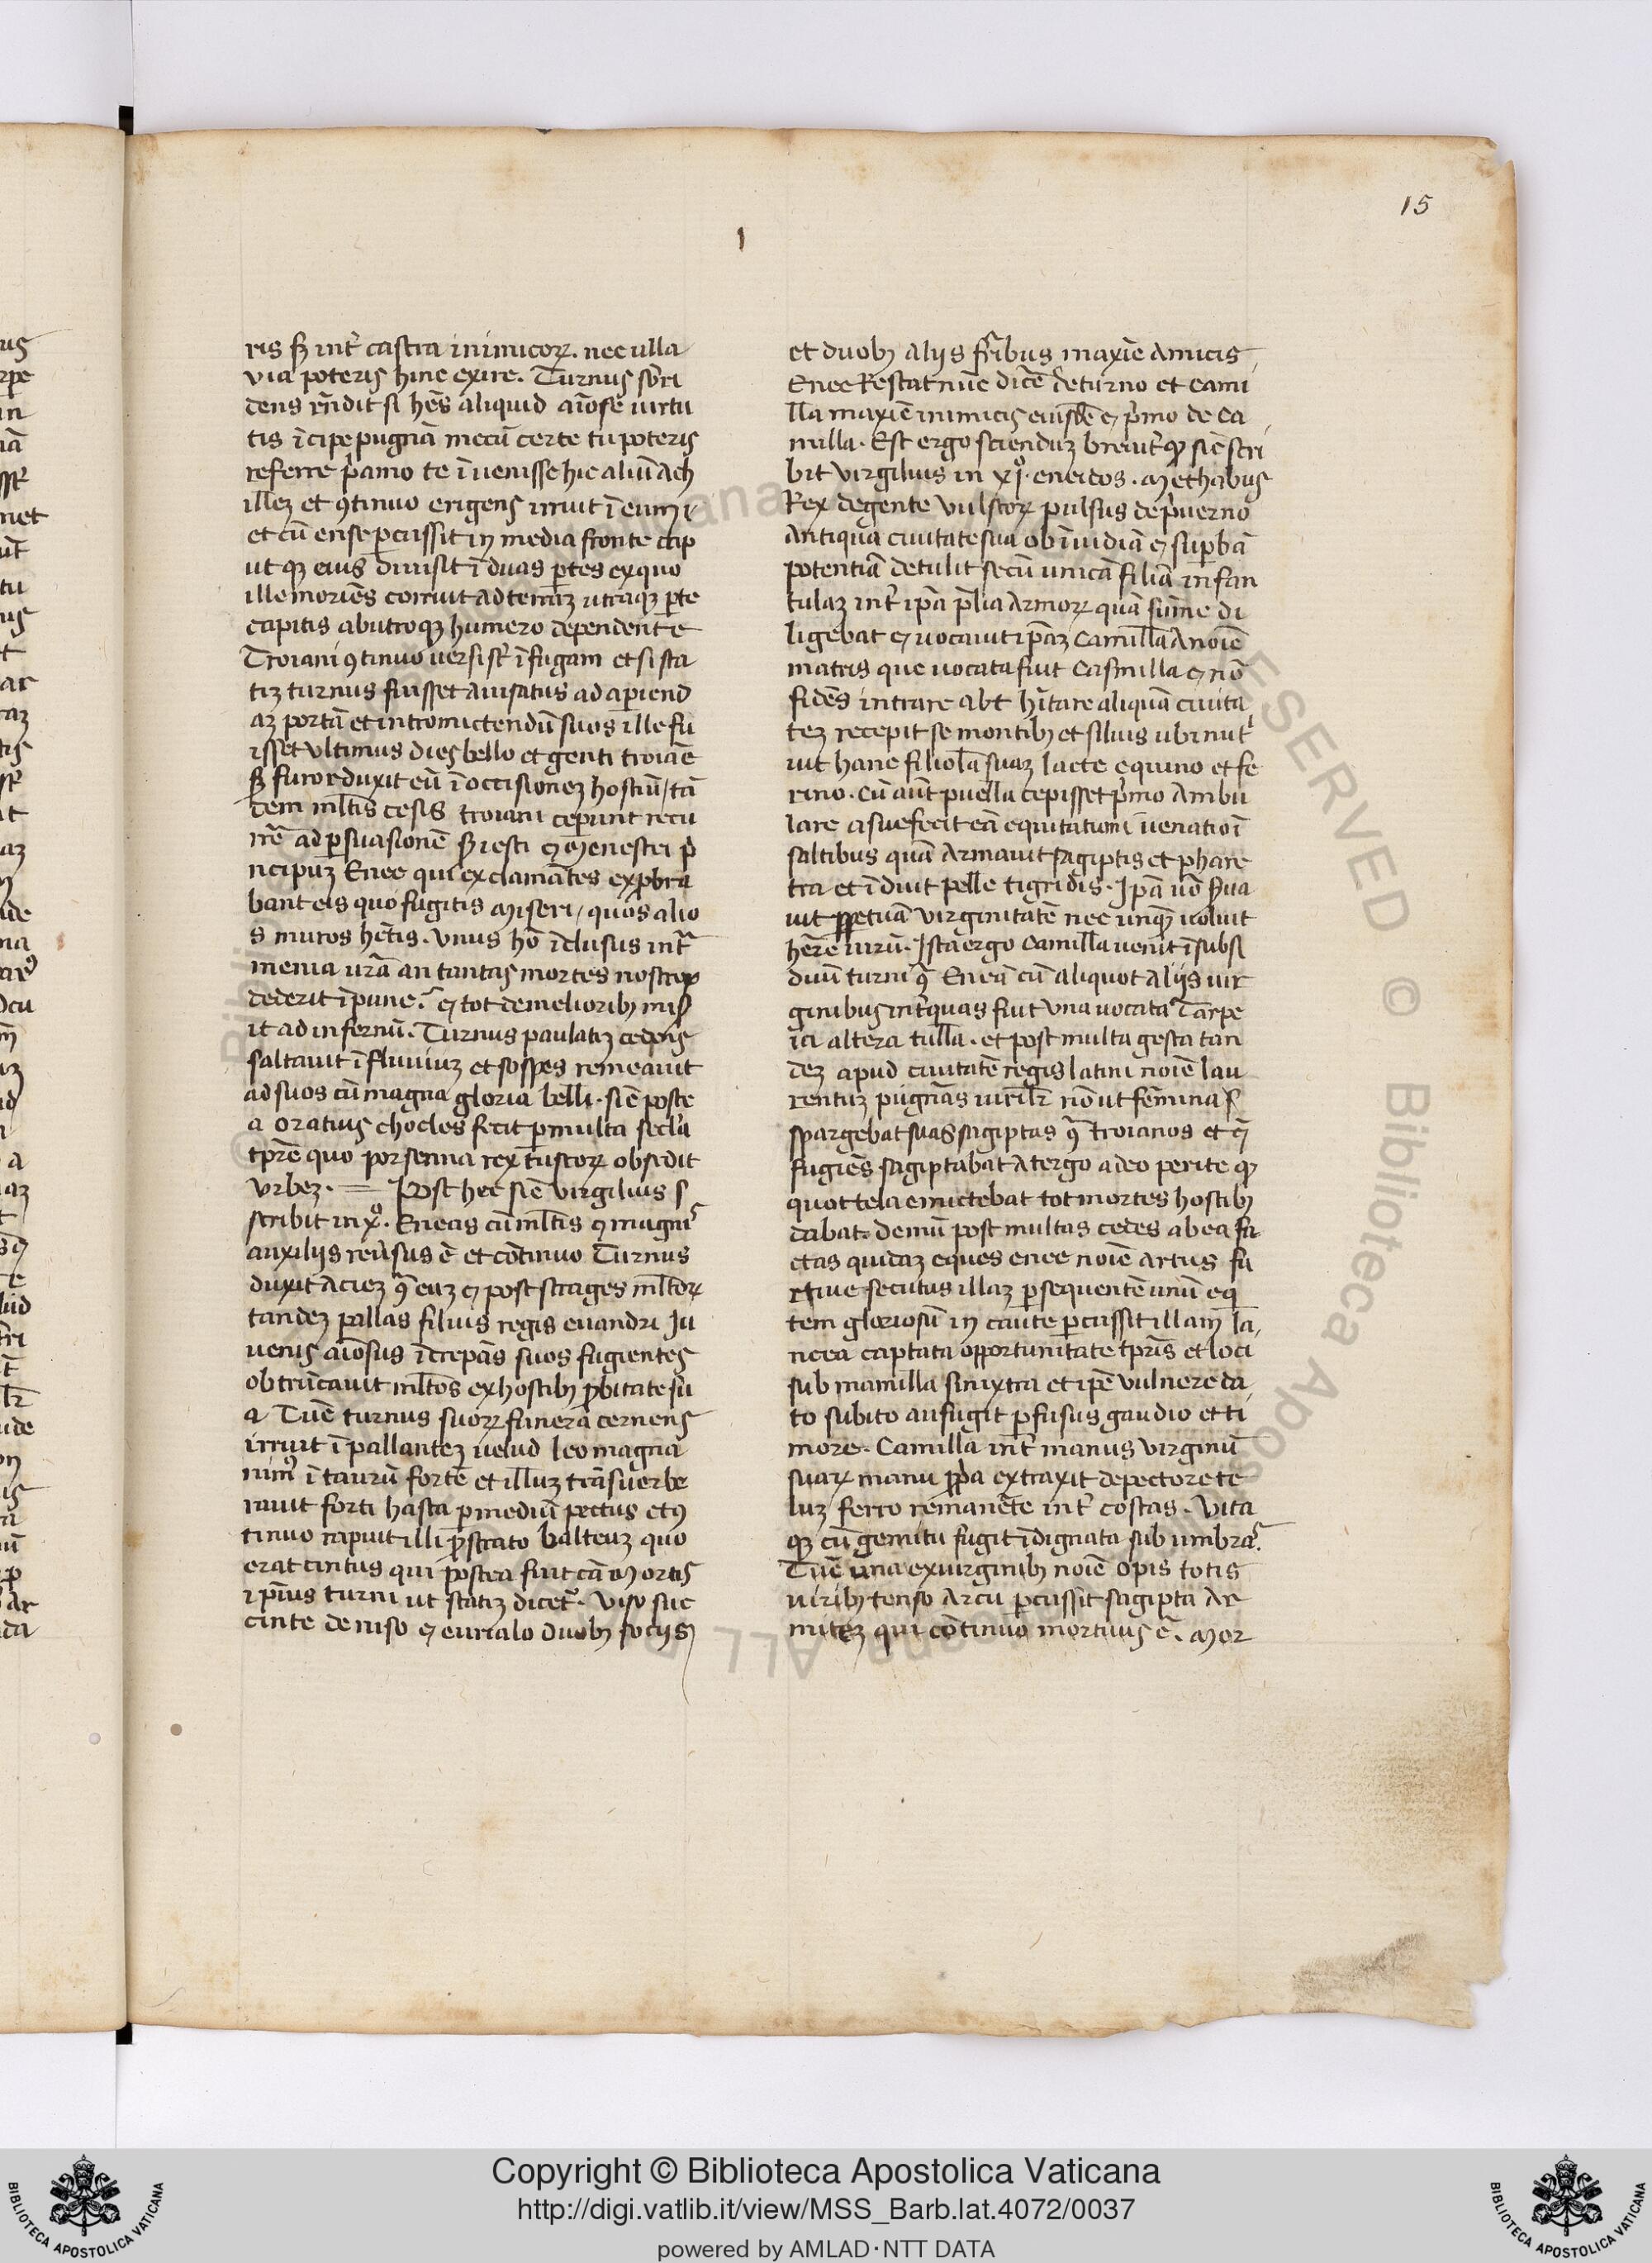 15
1
ris sȝ int̾ castra inimicoꝝ. nec ulla
via poteris hinc exire. Turnus sb̾ri
dens rñdit si hēs aliquid aīose uirtu
tis īcipe pugnā mecū certe tu poteris
referre p̾amo te īuenisse hic aliū Ach
illeʒ et ꝯtinuo erigens irruit ī eum
et cū ense ꝑcussit in media fronte cap
ut qʒ eius diuisit ī duas ꝑtes ex quo
ille moriēs corruit ad terraʒ utraqʒ ꝑte
capitis ab utroqʒ humero dependente
Troiani ꝯtinuo uersi st̾ ī fugam et si sta
tiʒ turnus fuisset auisatus ad aꝑiend
aʒ portā et intromictendū suos ille fu
isset ultimus dies bello et genti troiāe
sȝ furor duxit eū ī occisioneʒ hostiū / tā
dem ml̄tis cesis troiani ceꝑunt recu
rr̄e ad ꝑsuasionē s̾resti ⁊ Menestei p̾
ncipuʒ Enee qui exclamātes exꝓbra
bant eis quo fugitis miseri / quos alio
s muros hētis. vnus hō īclusus int̾
menia ur̄a an tantas mortes nostroꝝ
dederit īpune? ⁊ tot de melioribꝫ mis
it ad infernū. Turnus paulatiʒ cedens
saltauit ī fluuiuʒ et sospes remeauit
ad suos cū magna gloria belli. sic̄ poste
a oratius chocles fecit ꝑ multa secl̄a
tp̄re quo porsenna rex tuscoꝝ obsedit
vrbeʒ. = Post hec sic̄ virgilius s
scribit in xº. Eneas cū ml̄tis ⁊ magnis
auxiliis reūsus ē et cōtinuo Turnus
duxit acieʒ ꝯ̄ euʒ ⁊ post strages ml̄toꝝ
tandeʒ pallas filius regis euandri Iu
uenis aīosus īcrepās suos fugientes
obtrūcauit ml̄tos ex hostibꝫ ꝓbitate su
a Tūc turnus suoꝝ funera cernens
irruit ī pallanteʒ uelud leo magna
nimꝰ ī taurū fortē et illuʒ trāsuerbe
rauit forti hasta ꝑ mediū pectus et ꝯ
tinuo rapuit illi ꝓstrato balteuʒ quo
erat cintus qui postea fuit cā mortis
ip̄ius turni ut statiʒ dicet̾. Viso suc
cinte de niso ⁊ eurialo duobꝫ sociis
et duobꝫ aliis fr̄ibus maxīe amicis
Enee Restat nūc dic̄e de turno et cami
lla maxīe inimicis eiusdē ⁊ p̾mo de ca
milla. Est ergo scienduʒ breuit̾ qꝫ sic̄ scri
bit virgilius in xjº. eneidos. Methabus
Rex de gente vulscoꝝ pulsus de p̾uerno
antiqua ciuitate sua ob īuidiā ⁊ suꝑbā
potentiā detulit secū unicā filiā infan
tulaʒ int̾ ip̄a p̄lia armoꝝ quā sūme di
ligebat ⁊ uocauit ip̄aʒ Camillā a noīe
matris que uocata fuit Casmilla ⁊ nō
fidēs intrare aut hītare aliquā ciuita
teʒ recepit se montibꝫ et siluis ubi nut̾
iuit hanc filiolā suaʒ lacte equino et fe
rino. Cū aūt puella cepisset p̾mo ambu
lare asuefecit eā equitationi ī uenatioī
saltibus quā armauit sagiptis et phare
tra et īduit pelle tigridis. Ip̄a uō s̾ua
uit ꝑpetuā virginitatē nec unqʒ uoluit
hēre uirū. Ista ergo Camilla uenit ī subsi
diū turni ꝯ̄ Eneā cū aliquot aliis uir
ginibus int̾ quas fuit una uocata Tarpe
ia altera tulla. et post multa gesta tan
deʒ apud ciuitatē regis latini noīe lau
rentuʒ pugnās uiril̄r nō ut femina s
spargebat suas sagiptas ꝯ̄ troianos et ēī
fugiēs sagiptabat a tergo adeo perite qꝫ
quot tela emictebat tot mortes hostibꝫ
dabat. demū post multas cedes ab ea fa
ctas quidaʒ eques enee noīe artus fu
rtiue secutus illaʒ ꝑsequentē unū eq
tem gloriosū in caute ꝑcussit illam la
ncea captata opportunitate tp̄ris et loci
sub mamilla sinixtra et ip̄e vulnere da
to subito aufugit ꝑfusus gaudio et ti
more. Camilla int̾ manus virginū
suaꝝ manu ꝓp̾a extraxit de pectore te
luʒ ferro remanēte int̾ costas. Vita
qʒ cū gemitu fugit īdignata sub umbras.
Tūc una ex uirginibꝫ noīe opis totis
uiribꝫ tenso arcu ꝑcussit sagipta ar
miteʒ qui cōtinuo mortuus ē. mor
Copyright © Biblioteca Apostolica Vaticana
http://digi.vatlib.it/view/MSS_Barb.lat.4072/0037
powered by AMLAD·NTT DATA
BIBLIOTECA APOSTOLICA VATICANA
BIBLIOTECA APOSTOLICA VATICANA